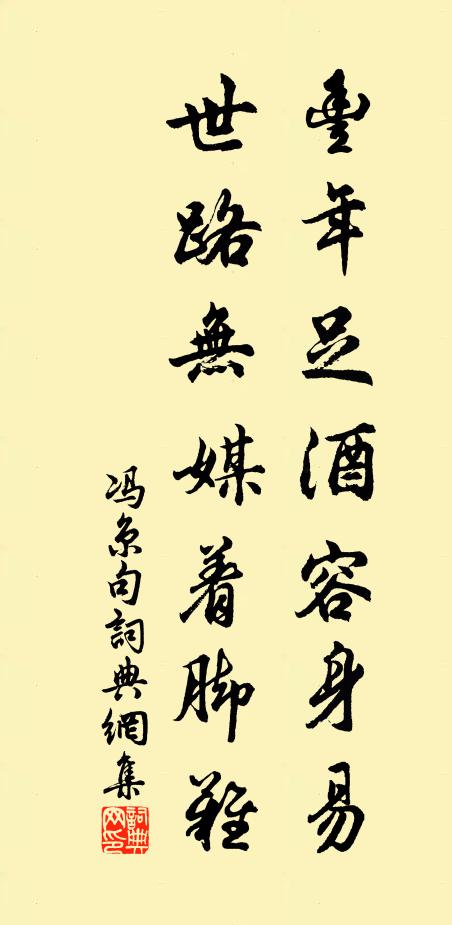 豐年足酒容身易
世路無媒着脚難
冯京句詞典網集
詞典網印